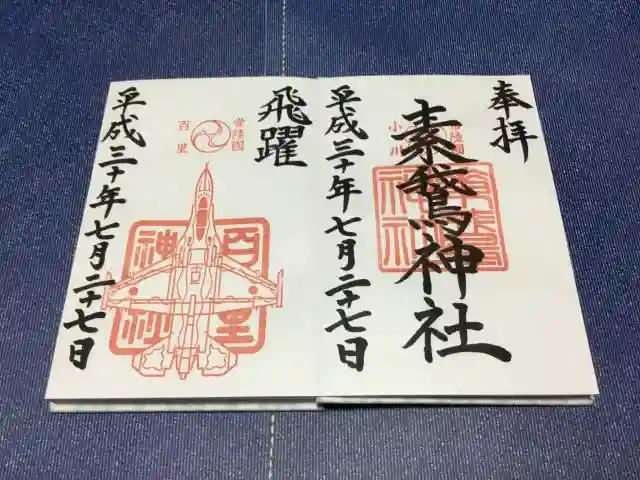 奉拝
常陸國
小川
素鵞神社
素鵞
神社
平成三十年七月二十七日
飛躍
常陸國
百里
百里
神社
平成三十年七月二十七日